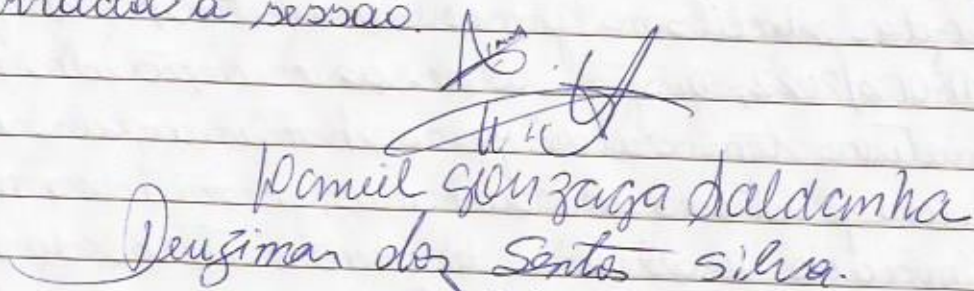 a sessão.
Daniel Gonzaga Saldanha
Deuzimar dos Santos Silva.